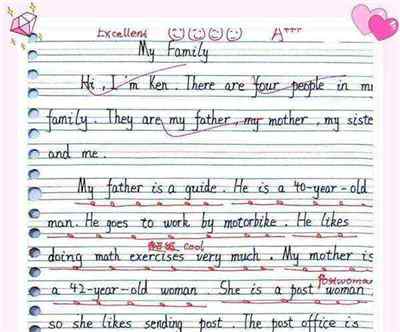 Excellent A+++
My Family
Hi, I'm Ken. There are four people in m
family. They are my father, my mother, my siste
and me.
My father is a guide. He is a 40-year-old
man. He goes to work by motorbike. He likes
cool
doing math exercises very much. My mother is
Postwoma
a 42-year-old woman. She is a post woman,
so she likes sending post. The post office is